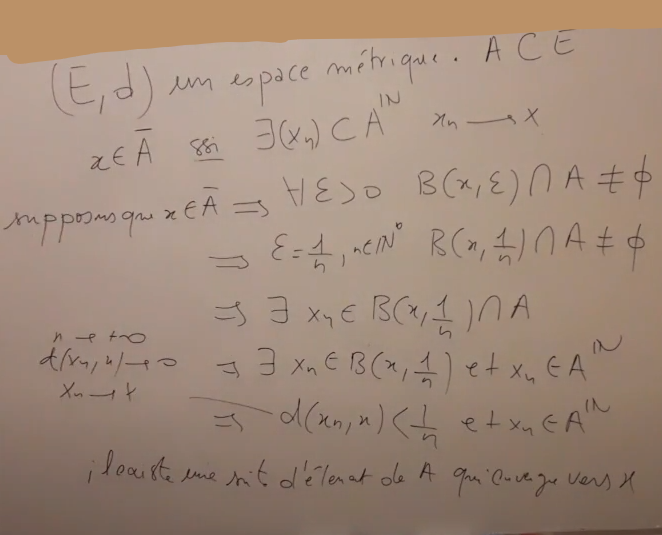 (E,d) un espace métrique. A ⊂ E
x ∈ Ā ssi ∃(xₙ) ⊂ A^ℕ xₙ → x
supposons que x ∈ Ā ⇒ ∀ε>0 B(x,ε) ∩ A ≠ ϕ
⇒ ε = 1/n, n∈ℕ* B(x,1/n) ∩ A ≠ ϕ
⇒ ∃ xₙ ∈ B(x,1/n) ∩ A
n → +∞
d(xₙ,x) → 0 ⇒ ∃ xₙ ∈ B(x,1/n) et xₙ ∈ A^ℕ
xₙ → x
⇒ d(xₙ,x) < 1/n et xₙ ∈ A^ℕ
il existe une suit d'élément de A qui converge vers x